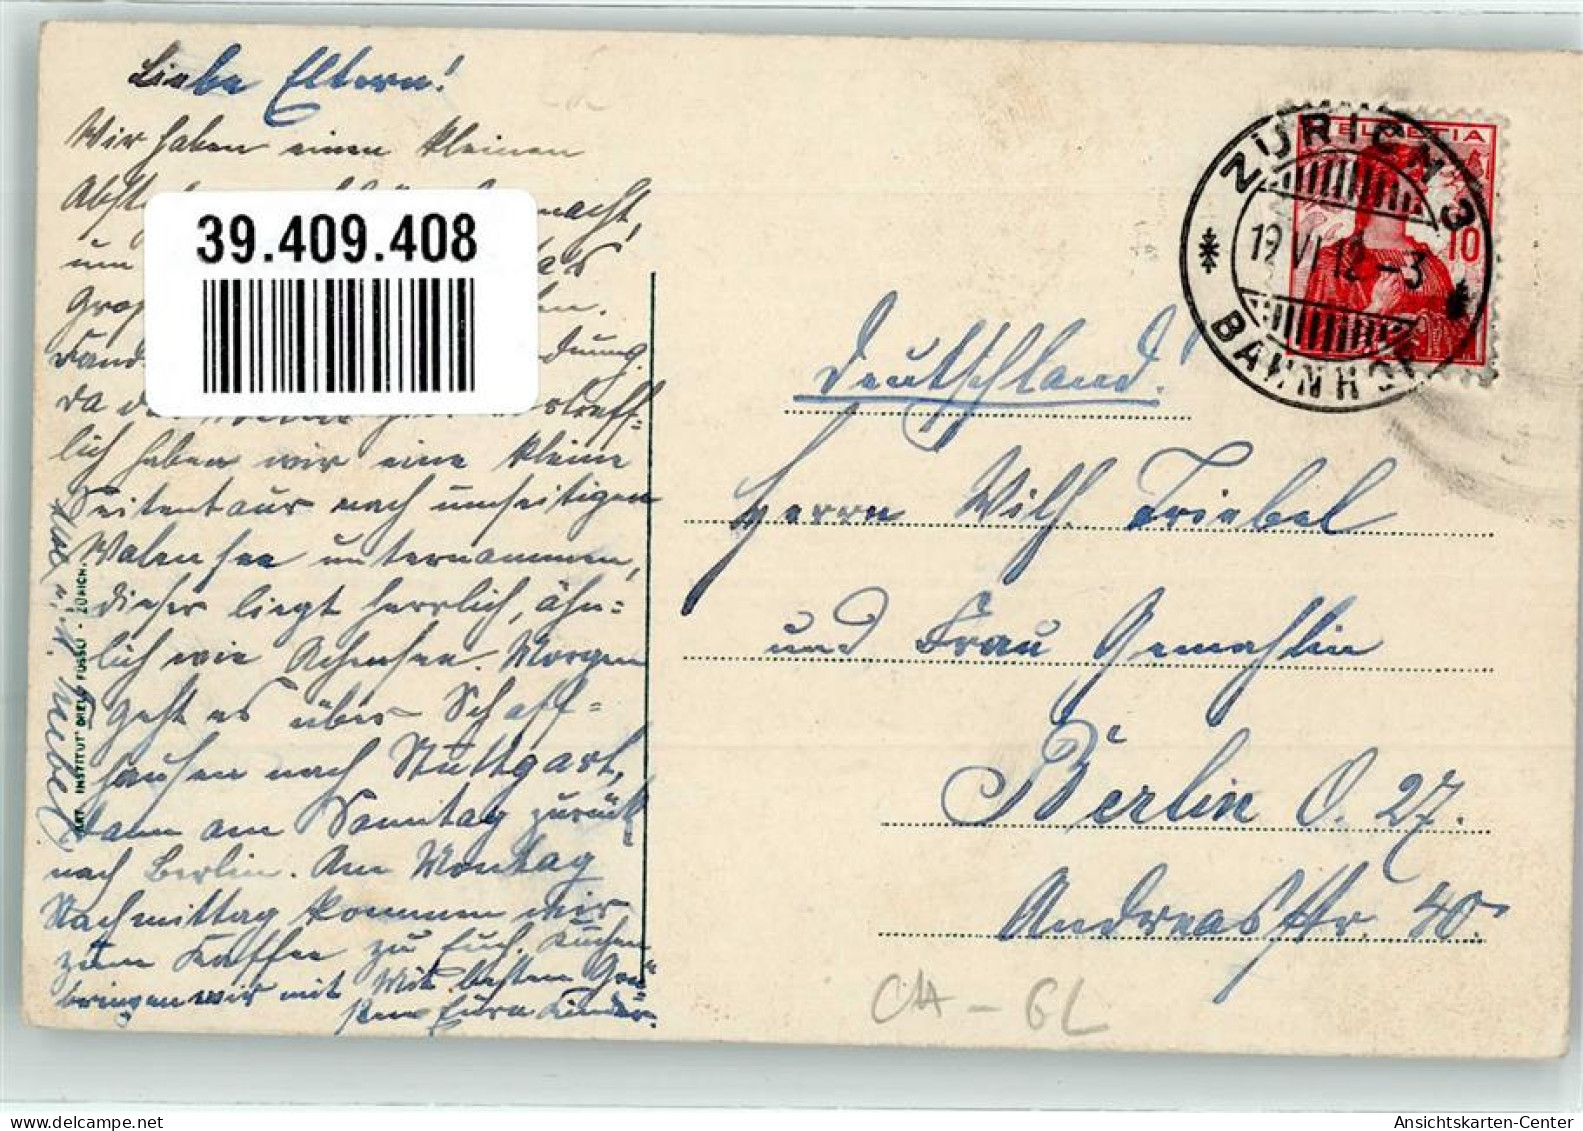 Liebe Eltern!
Wir haben einen kleinen
macht,
um
das
Groß
Fand
da
vortreff-
lich haben wir eine kleine
Seitentour nach umseitigen
Walensee unternommen,
dieser liegt herrlich, ähn-
lich wie Achensee. Morgen
geht es über Schaff-
hausen nach Stuttgart,
dann am Sonntag zurück
nach Berlin. Am Montag
Nachmittag kommen wir
zum Kaffee zu Euch. Kuchen
bringen wir mit. Mit besten Grü-
ssen Eure Kinder.
u. W. Triebel
ART. INSTITUT ORELL FÜSSLI - ZÜRICH.
39.409.408
HELVETIA
10
ZÜRICH 3
12 VI 12 -3
BAHNHOF
Deutschland!
Herrn Wilh. Triebel
und Frau Gemahlin
Berlin O. 27.
Andreasstr. 40.
CH - GL
Ansichtskarten-Center